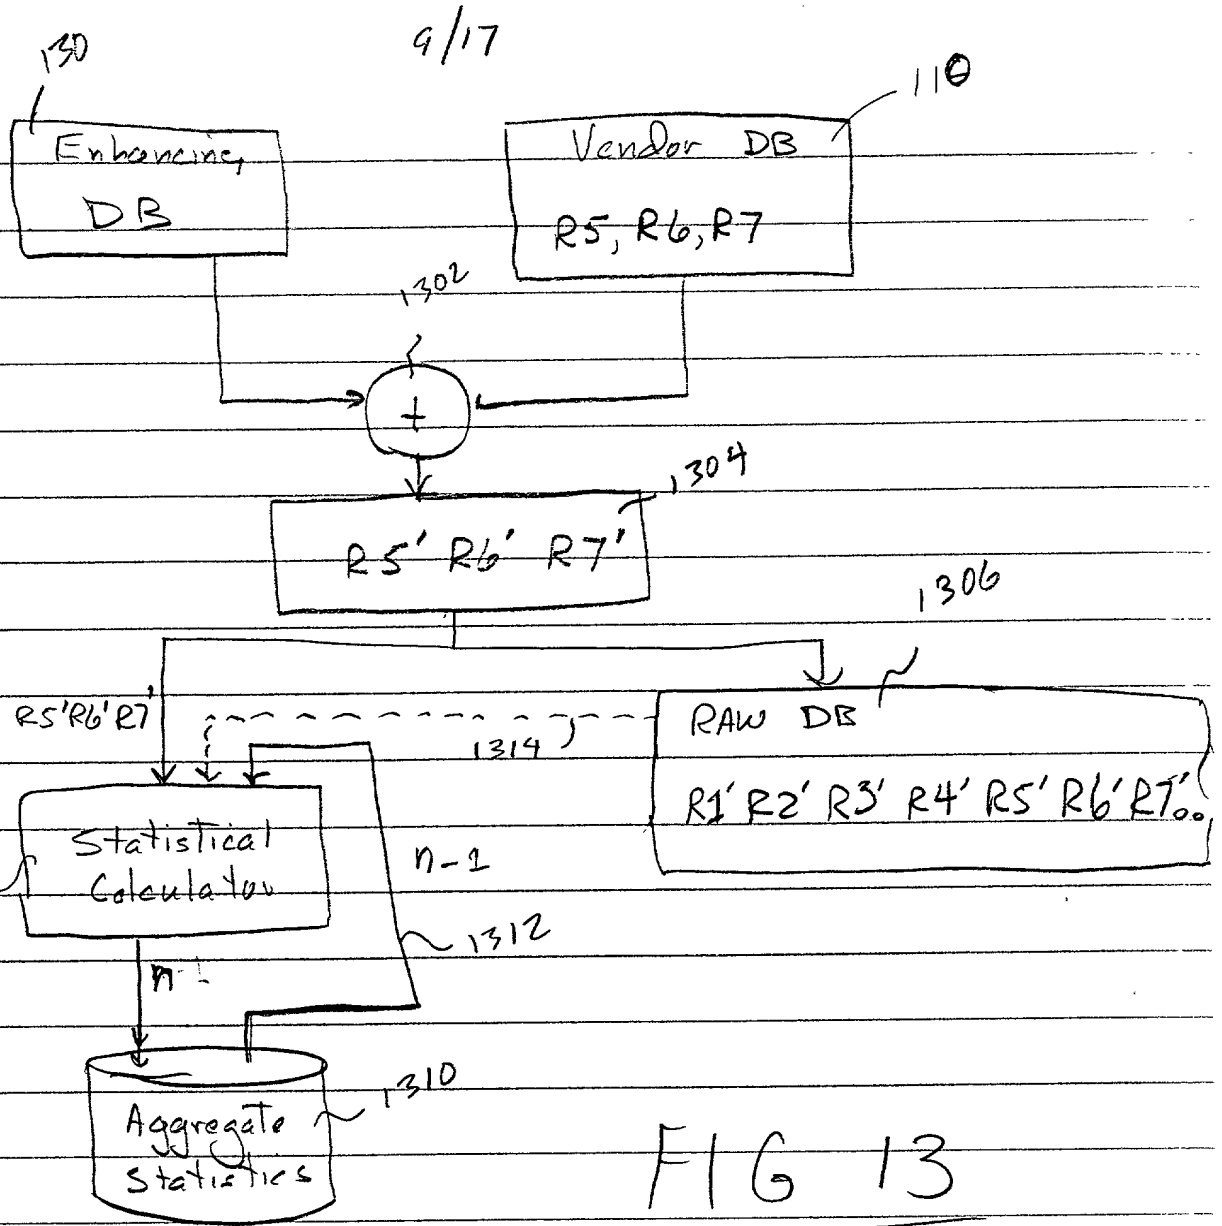 9/17
130
110
Enhancing
DB
Vendor DB
R5, R6, R7
1302
+
1304
R5' R6' R7'
1306
R5' R6' R7'
1314
RAW DB
R1' R2' R3' R4' R5' R6' R7'..
Statistical
Calculator
n-1
1312
n
1310
Aggregate
Statistics
FIG 13